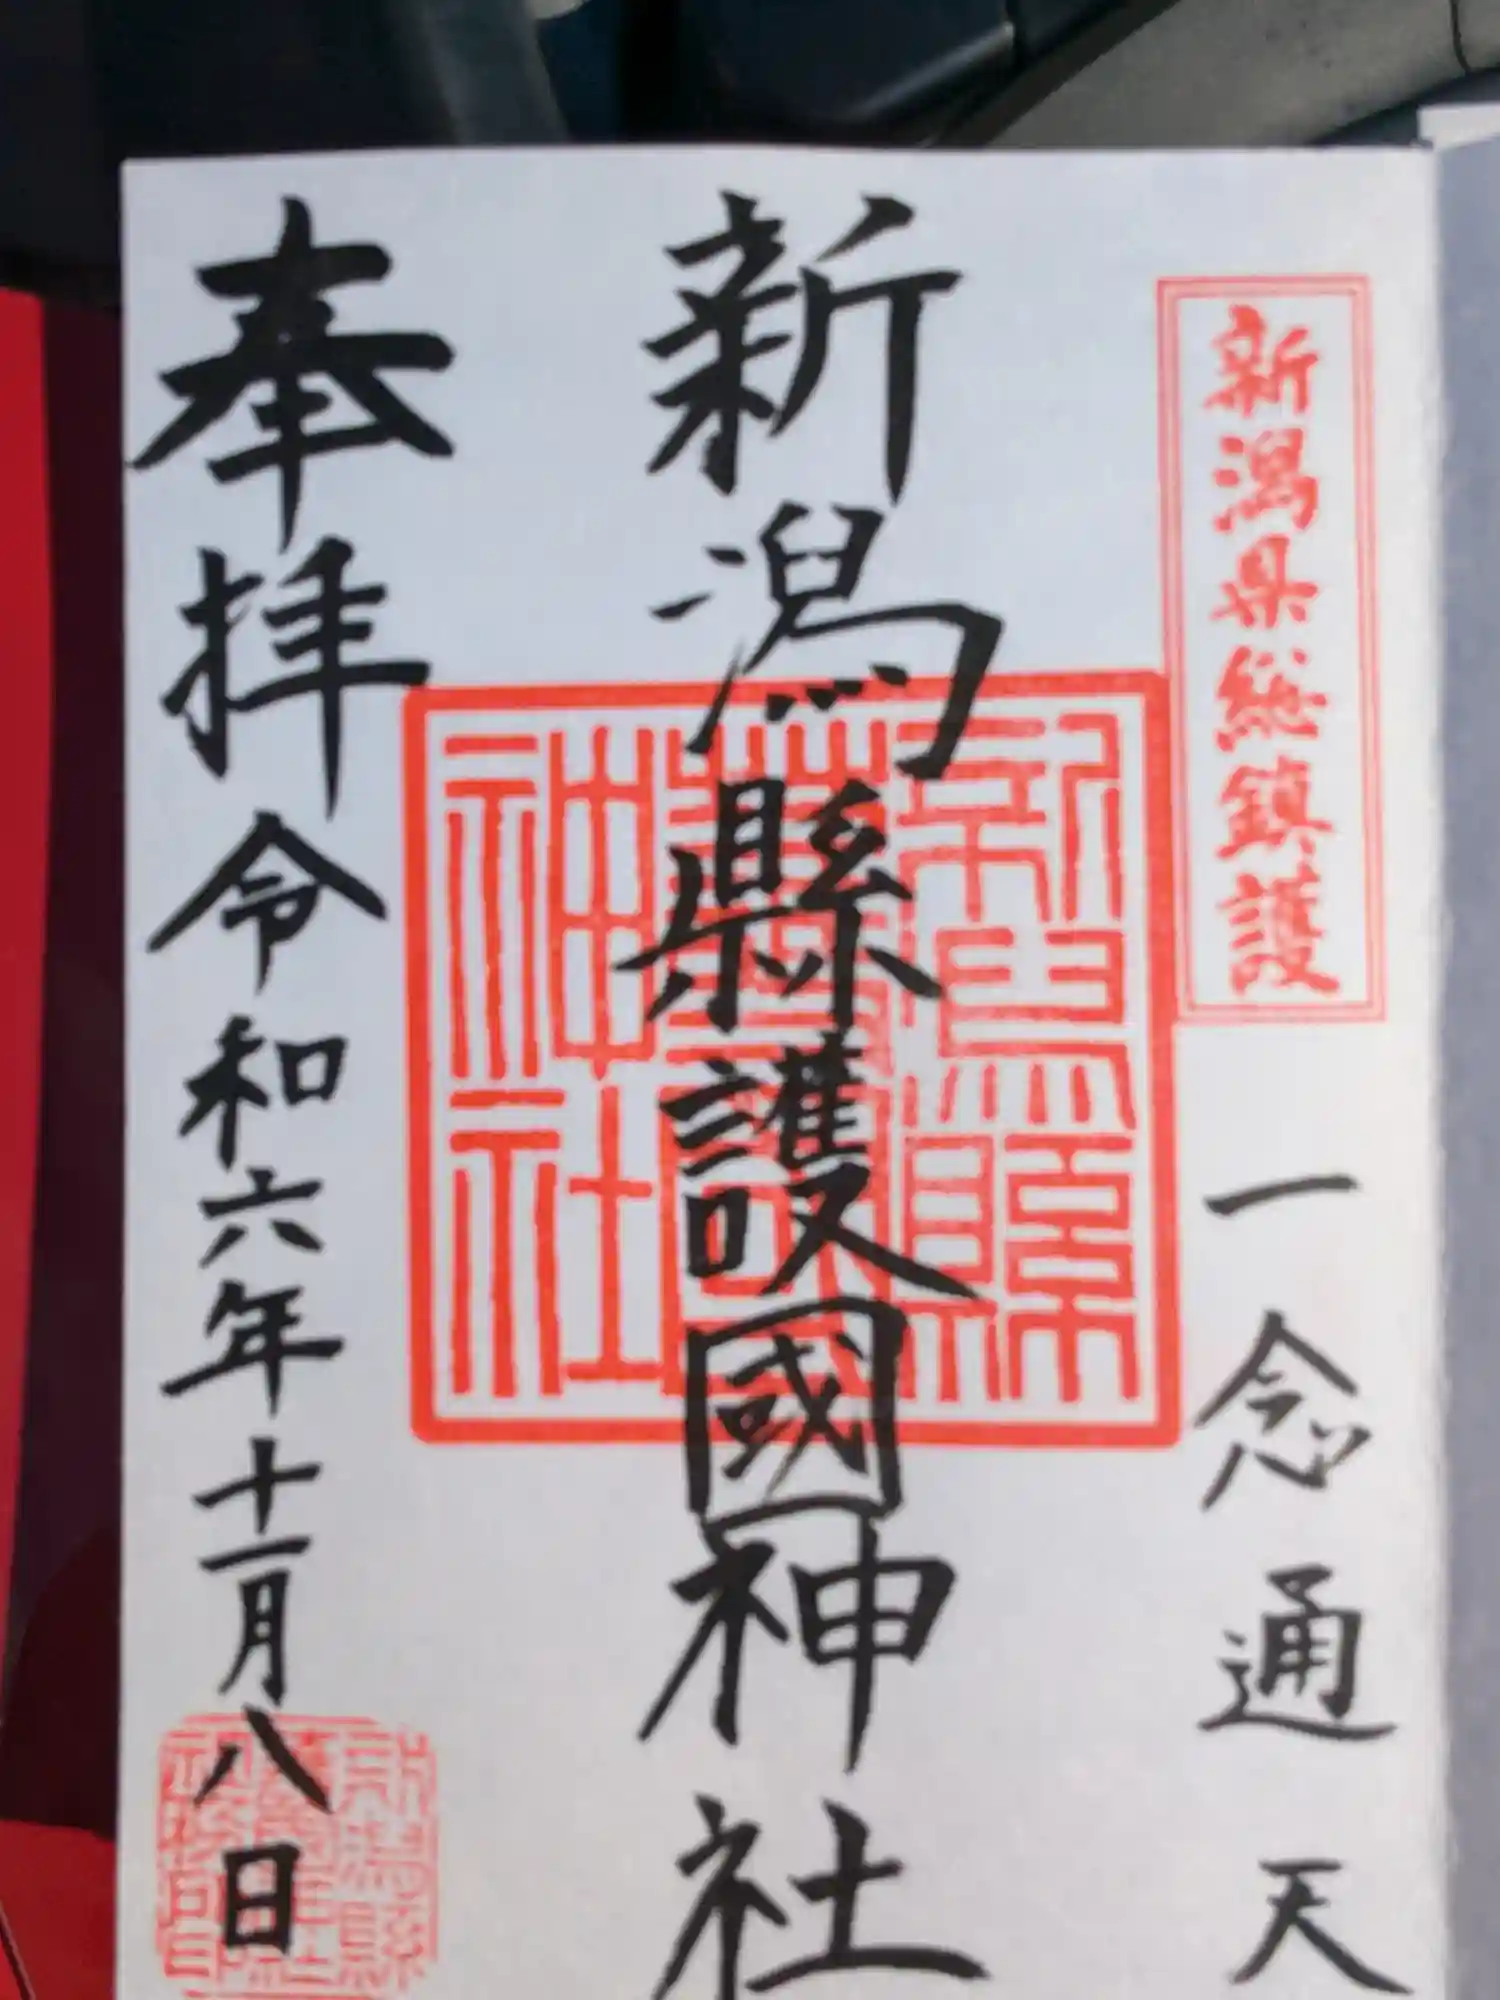 新潟県総鎮護
一念通天
新潟縣護國神社
新潟縣
護國
神社
奉拝 令和六年十一月八日